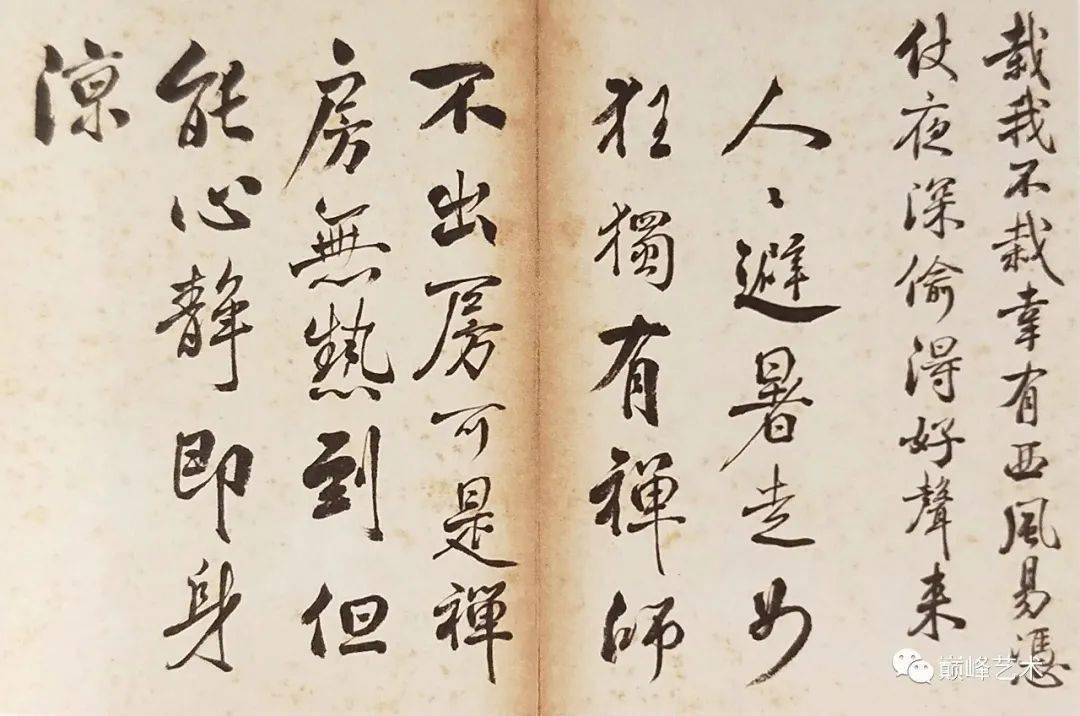 栽我不栽幸有西風易憑
仗夜深偷得好聲来
人〻避暑走如
狂獨有禪師
不出房可是禪
房無熱到但
能心靜即身
涼
巅峰艺术